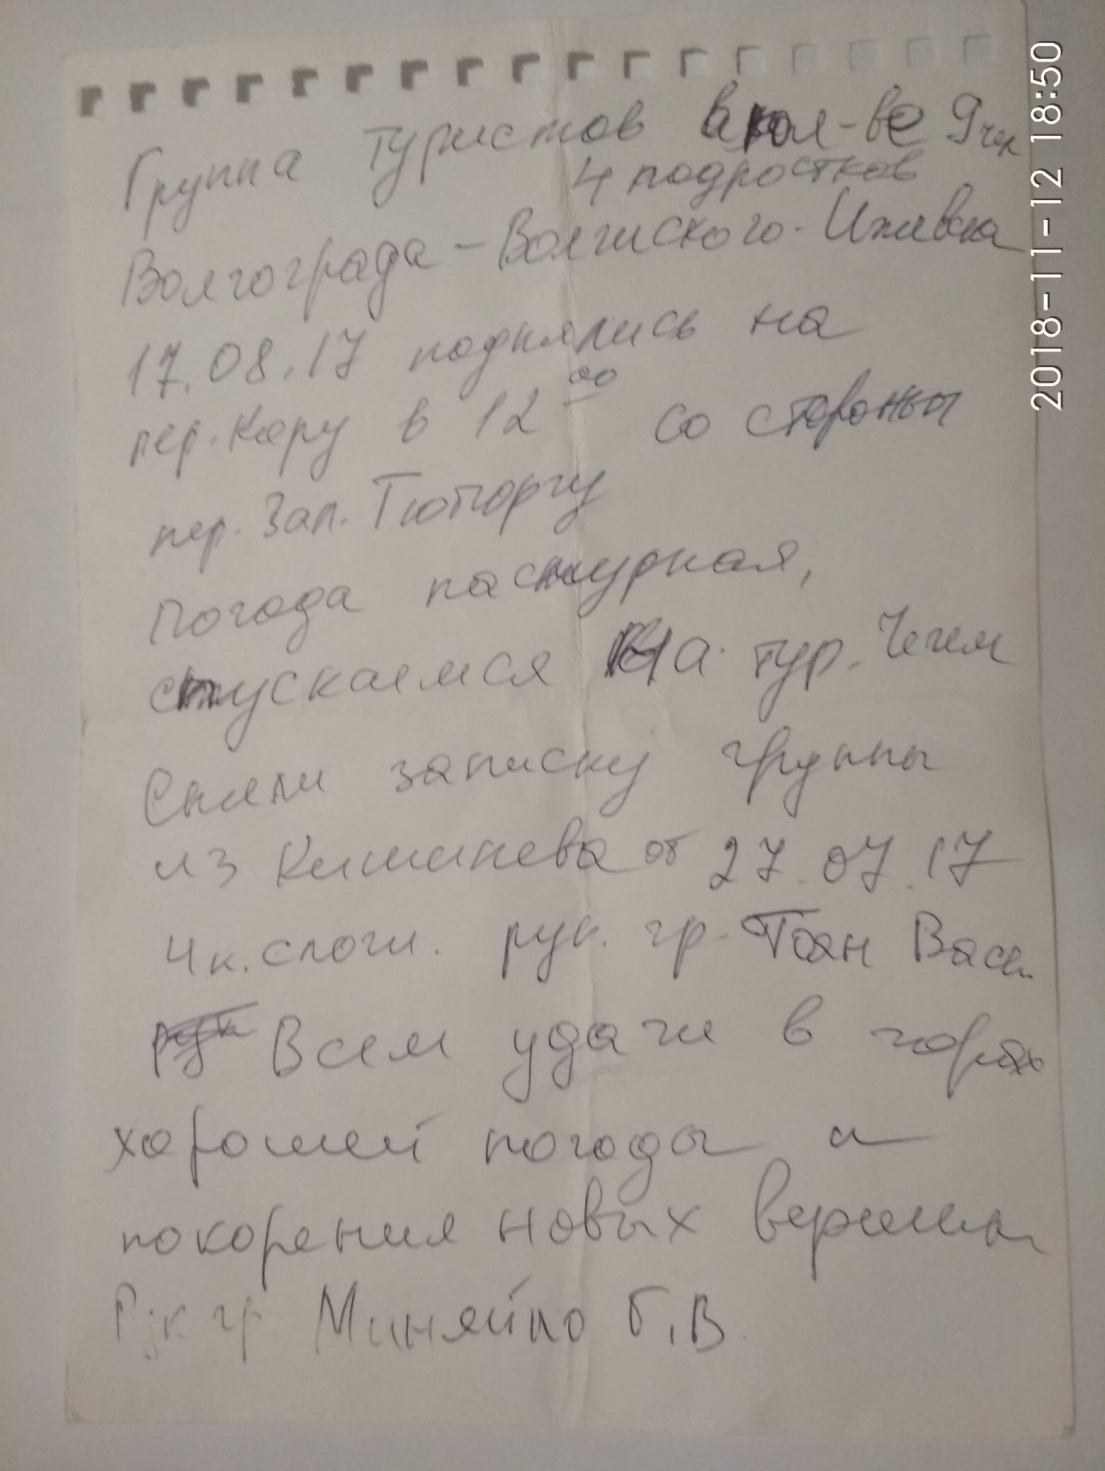 Группа туристов в кол-ве 9 чел
4 подростков
Волгограда - Волжского - Ижевска
17.08.17 поднялись на
пер. Кару в 12 00 со стороны
пер. Зап. Тютюргу
Погода пасмурная,
спускаемся на тур. Чегем
Сняли записку группы
из Кишинева от 27.07.17
4 к. слож. рук. гр. Тоян Васи.
Всем удачи в горах
хорошей погоды и
покорения новых вершин
Рук гр Миняйло Г.В.
2018-11-12 18:50